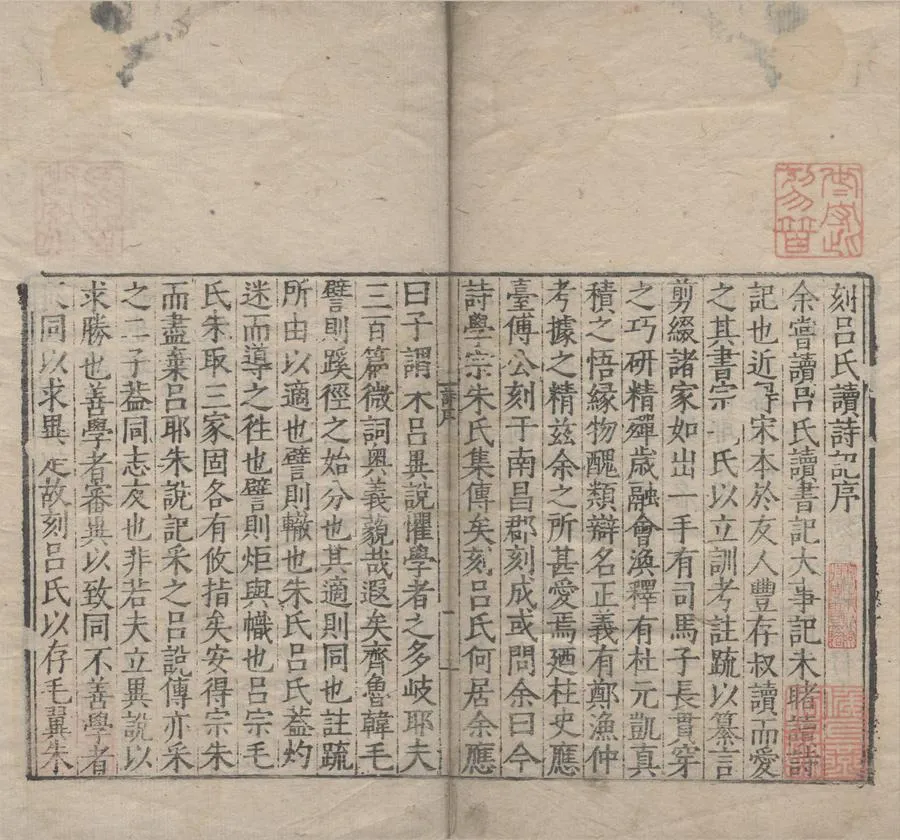 刻呂氏讀詩記序
余嘗讀呂氏讀書記大事記未睹讀詩
記也近得宋本於友人豐存叔讀而愛
之其書宗氏以立訓考註疏以纂言
剪綴諸家如出一手有司馬子長貫穿
之巧研精殫歲融會渙釋有杜元凱真
積之悟緣物醜類辯名正義有鄭漁仲
考據之精茲余之所甚愛焉廼柱史應
臺傅公刻于南昌郡刻成或問余曰今
詩學宗朱氏集傳矣刻呂氏何居余應
曰子謂朱呂異說懼學者之多歧耶夫
三百篇微詞奧義藐哉遐矣齊魯韓毛
譬則蹊徑之始分也其適則同也註疏
所由以適也譬則轍也朱氏呂氏葢灼
迷而導之徃也譬則炬與幟也呂宗毛
氏朱取三家固各有攸指矣安得宗朱
而盡棄呂耶朱說記采之呂說傳亦采
之二子葢同志友也非若夫立異說以
求勝也善學者審異以致同不善學者
同以求異是故刻呂氏以存毛翼朱